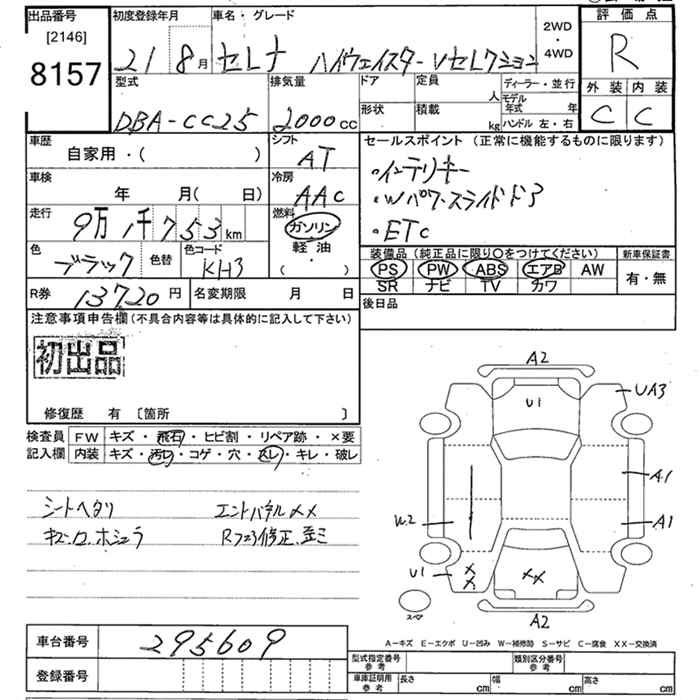 出品番号 初度登録年月 車名・グレード 2WD・4WD 評価点
[2146]
8157 21 8月 セレナ ハイウェイスターVセレクション R
型式 排気量 ドア 定員 人 ディーラー・並行 外装 内装
DBA-CC25 2000cc 形状 積載 kg モデル年式 年 ハンドル 左・右 C C
車歴 シフト セールスポイント(正常に機能するものに限ります)
自家用・( ) AT ・インテリキー
車検 冷房 ・Wパワースライドドア
年 月(日) AAC
走行 9万1千753km 燃料 ガソリン ・ETC
色 ブラック 色替 色コード KH3 軽油・( ) 装備品(純正品に限り〇をつけてください) 新車保証書
PS PW ABS エアB AW 有・無
SR ナビ TV カワ
R券 13720円 名変期限 月 日 後日品
注意事項申告欄(不具合内容等は具体的に記入して下さい)
初出品
修復歴 有 [箇所 ]
検査員 FW キズ・飛石・ヒビ割・リペア跡・×要
記入欄 内装 キズ・汚れ・コゲ・穴・スレ・キレ・破レ
シートヘタリ エンドパネル××
R 修正、歪ミ
A2
U1
UA3
A1
W2
A1
U1
××
××
スペア
A2
A-キズ E-エクボ U-凹み W-補修跡 S-サビ C-腐食 XX-交換済
車台番号 295609
型式指定番号 参考 類別区分番号 参考
登録番号 車庫証明用 参考 長さ cm 幅 cm 高さ cm